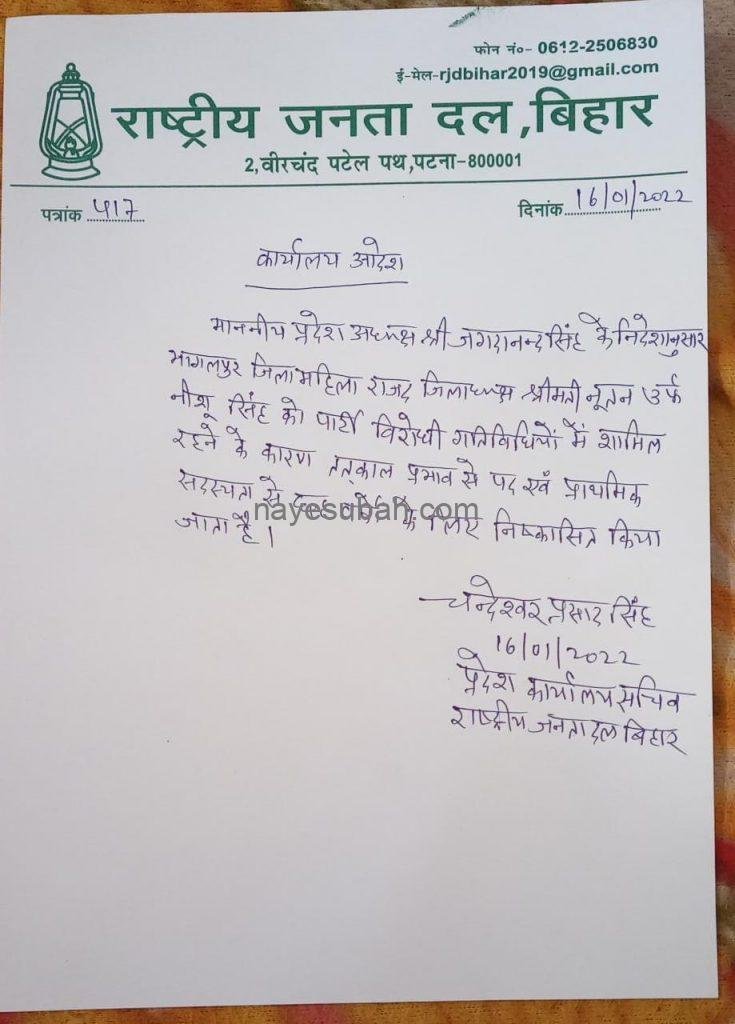 फोन नं०- 0612-2506830
ई-मेल-rjdbihar2019@gmail.com
राष्ट्रीय जनता दल,बिहार
2,वीरचंद पटेल पथ,पटना-800001
पत्रांक 517
दिनांक 16/01/2022
कार्यालय आदेश
माननीय प्रदेश अध्यक्ष श्री जगदानन्द सिंह के निदेशानुसार
भागलपुर जिला महिला राजद जिलाध्यक्ष श्रीमती नूतन उर्फ
नीशू सिंह को पार्टी विरोधी गतिविधियों में शामिल
रहने के कारण तत्काल प्रभाव से पद एवं प्राथमिक
सदस्यता से के लिए निष्कासित किया
nayesubah.com
जाता है।
चन्देश्वर प्रसाद सिंह
16/01/2022
प्रदेश कार्यालय सचिव
राष्ट्रीय जनता दल बिहार